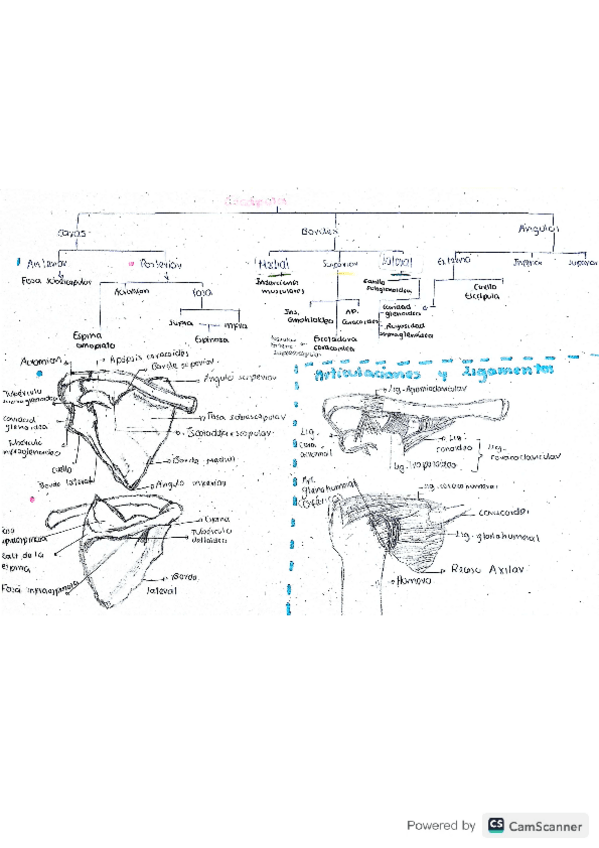 Escápula
Caras
Bordes
Ángulos
Anterior
Posterior
Medial
Superior
Lateral
Externo
Inferior
Superior
Fosa subescapular
Acromion
Fosa
Inserciones
musculares
Cuello
Escápula
Supra
infra
Espinosa
Espina
omoplato
Ins.
Omohioideo
AP.
Coracoides
Cavidad
glenoidea
Rugosidad
infraglenoidea
Escotadura
coracoidea
Acromion
Apófisis coracoides
Borde superior
Ángulo superior
Tubérculo
Cavidad
glenoidea
Fosa subescapular
Tubérculo
infraglenoideo
Borde medial
Cuello
Borde lateral
Ángulo inferior
Espina
Tubérculo
deltoideo
espina
Fosa infraespinosa
Borde
lateral
Articulaciones y Ligamentos
Lig. Acromioclavicular
Lig.
Cora
acromial
Lig.
conoideo
Lig.
coracoclavicular
Lig. trapezoideo
Lig. coracohumeral
coracoides
Lig. glenohumeral
Receso Axilar
Húmero
Powered by CS CamScanner